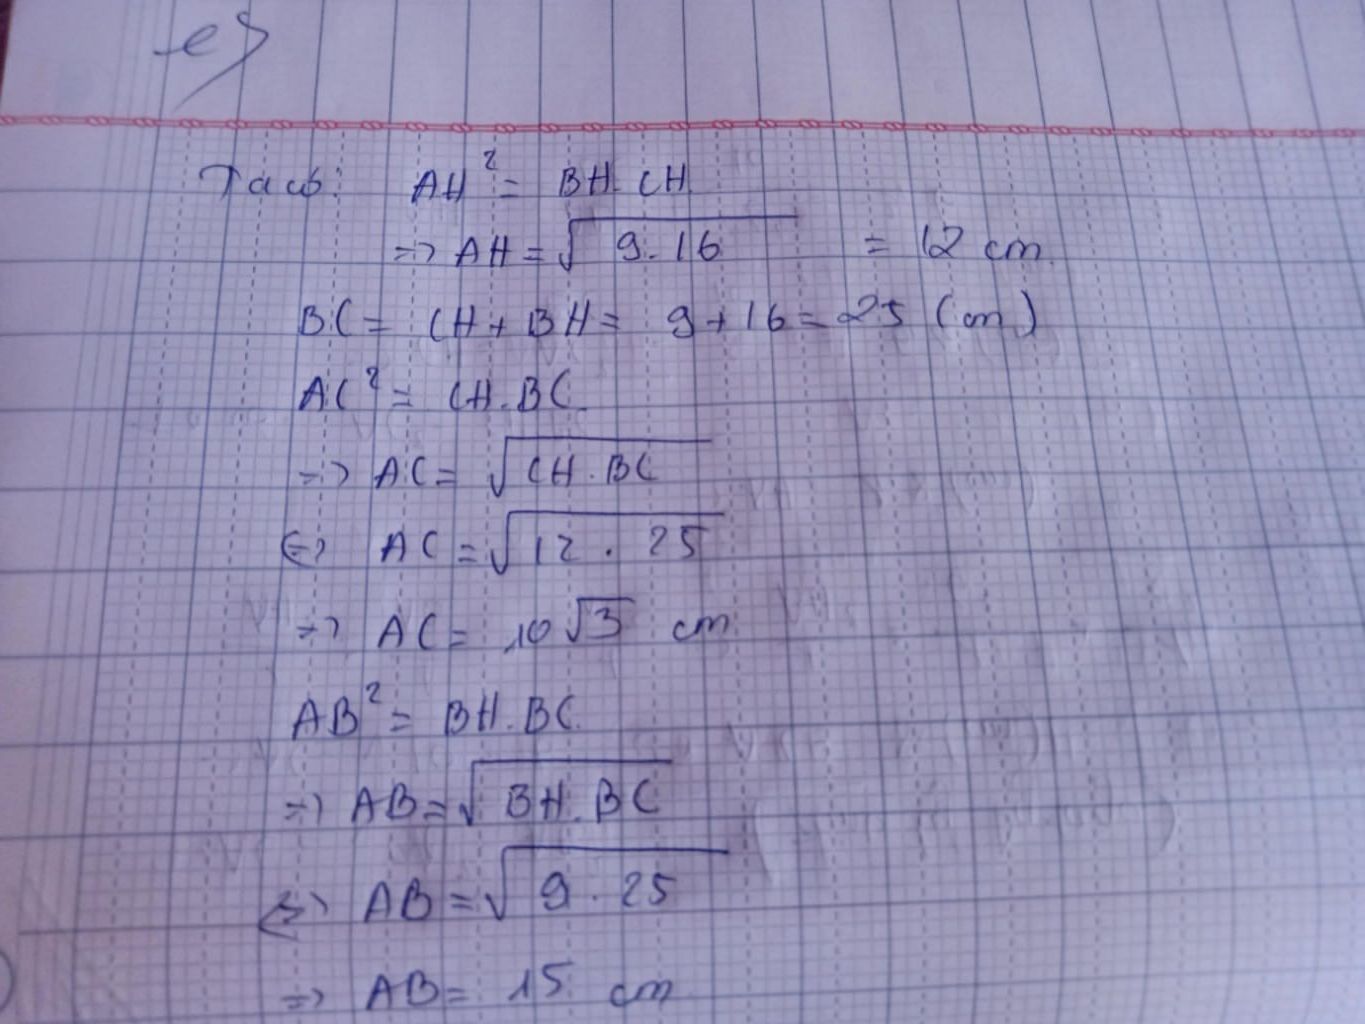 e)
Ta có: AH² = BH. CH
=> AH = √9.16 = 12 cm
BC = CH + BH = 9 + 16 = 25 (cm)
AC² = CH.BC
=> AC = √CH.BC
<=> AC = √12 . 25
=> AC = 10√3 cm
AB² = BH.BC
=> AB = √BH.BC
<=> AB = √9 . 25
=> AB = 15 cm